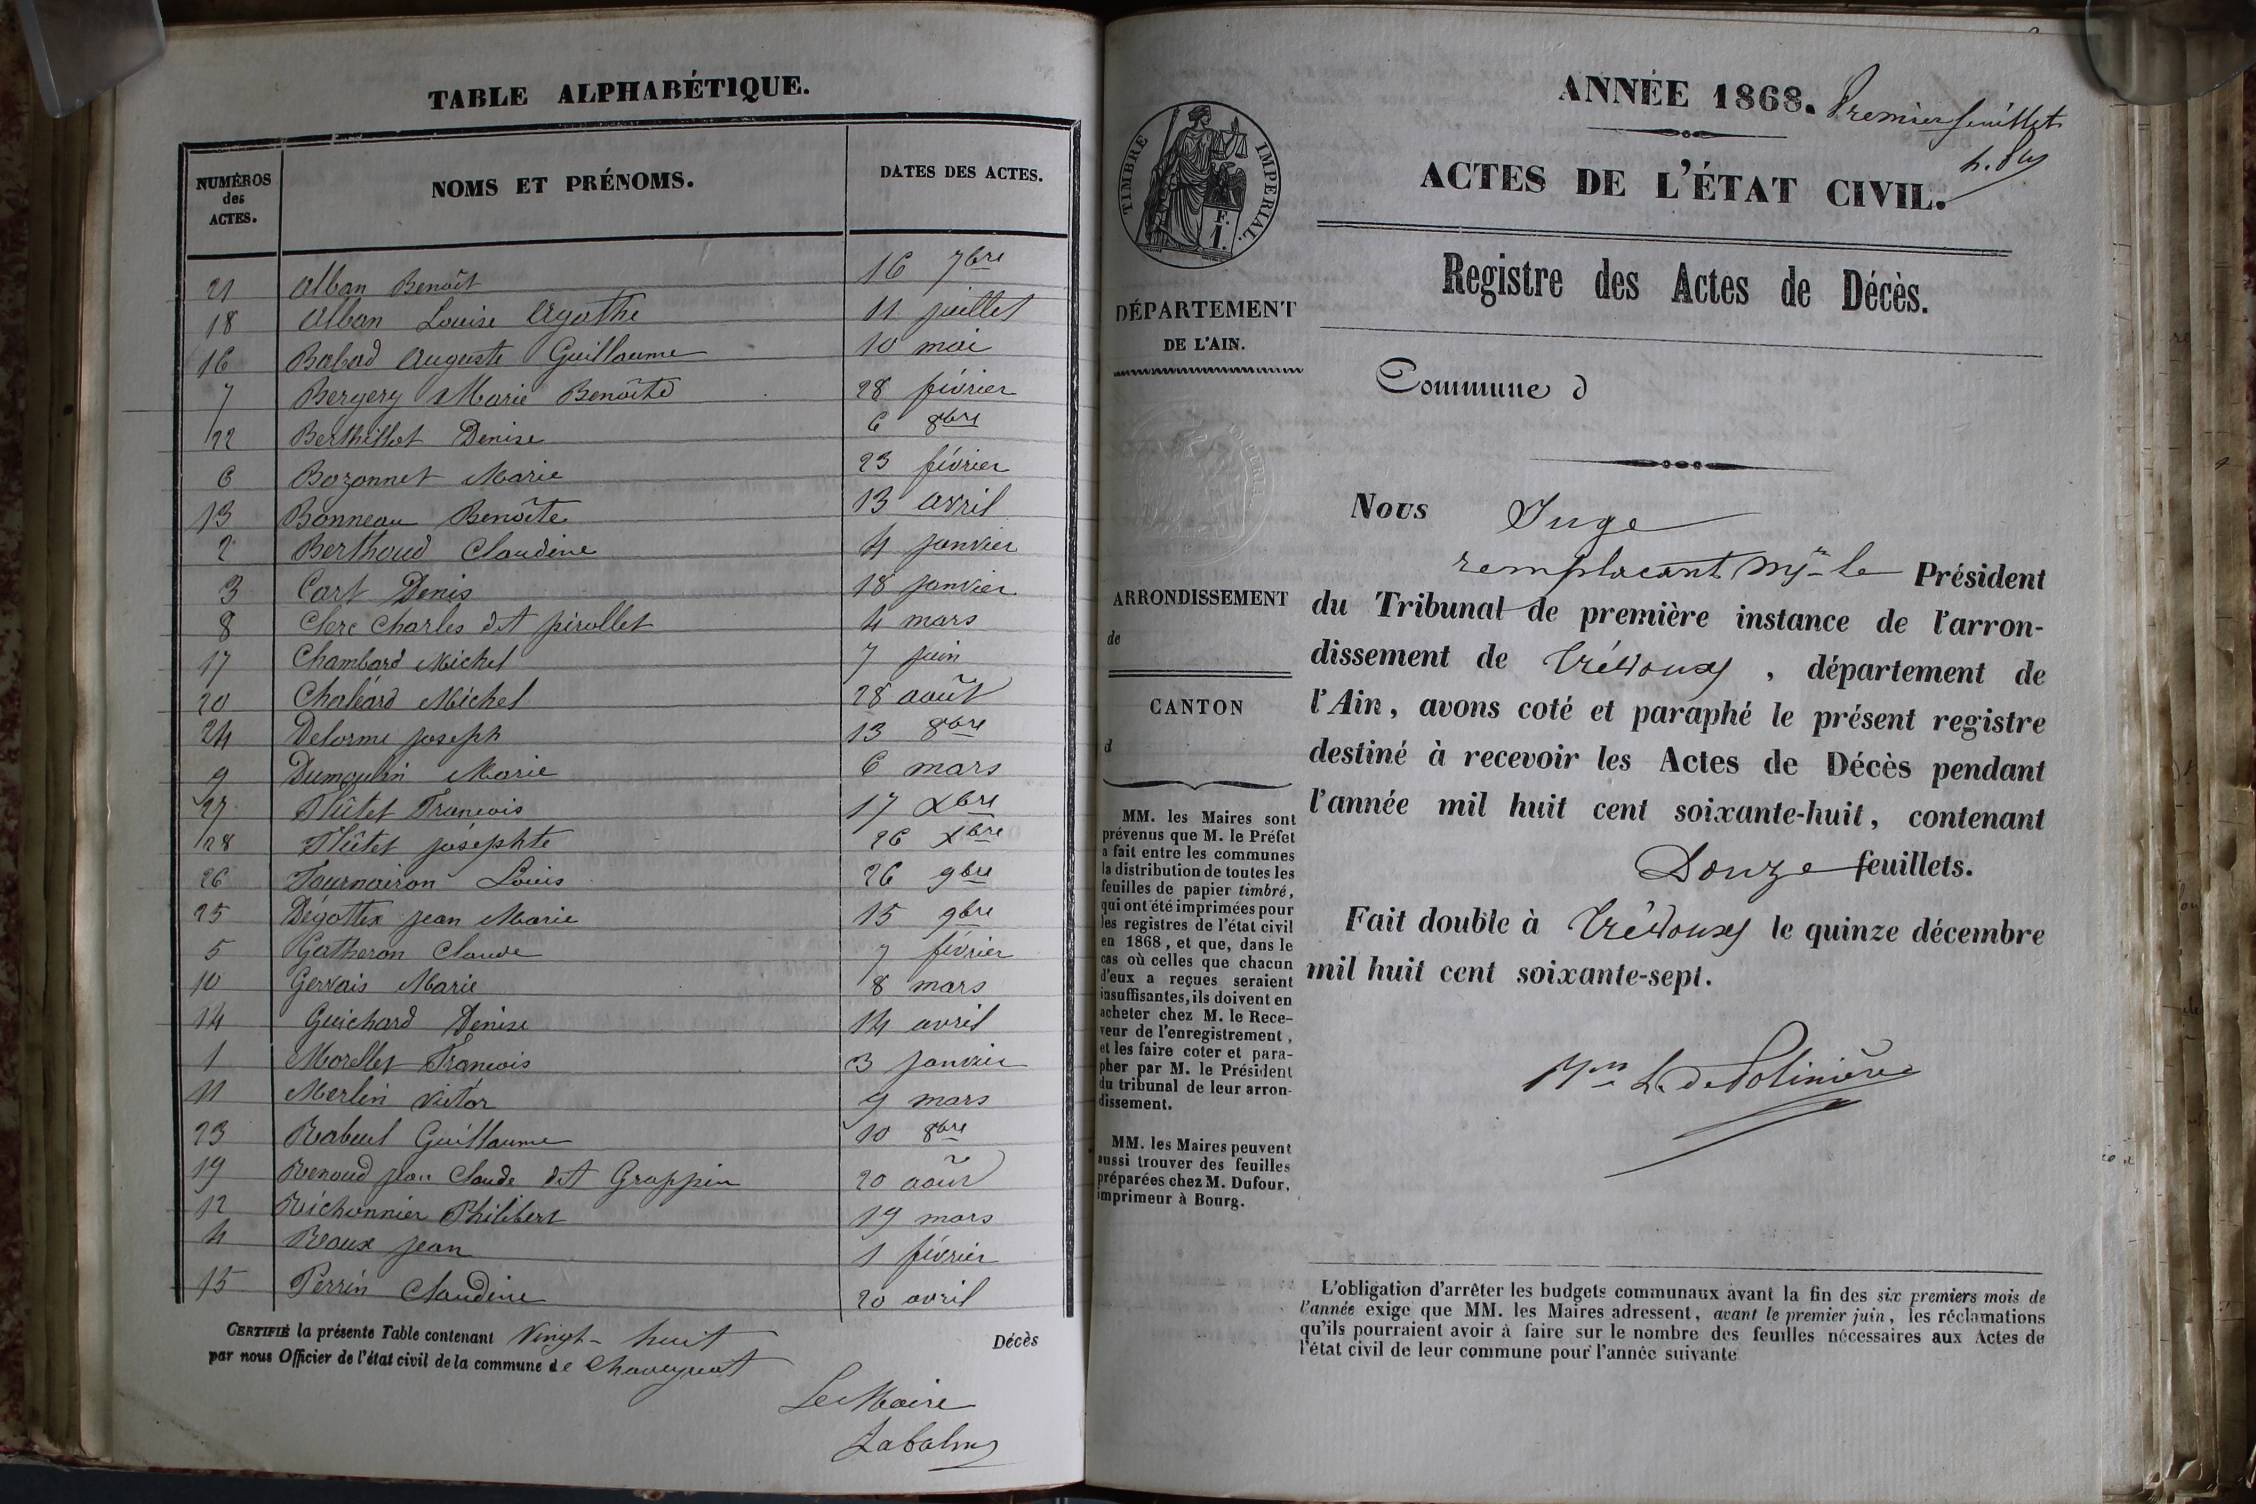 TABLE ALPHABÉTIQUE.
NUMÉROS des ACTES. NOMS ET PRÉNOMS. DATES DES ACTES.
21 Alban Benoît 16 7bre
18 Alban Louise Agathe 11 juillet
16 Babad Auguste Guillaume 10 mai
7 Bergery Marie Benoîte 28 février
22 Berthillot Denise 6 8bre
6 Bozonnet Marie 23 février
13 Bonneau Benoîte 13 avril
2 Berthoud Claudine 4 janvier
3 Cart Denis 18 janvier
8 Clerc Charles dit pirollet 4 mars
17 Chambard Michel 7 juin
20 Chaléard Michel 28 août
24 Delorme joseph 13 8bre
9 Dumoulin Marie 6 mars
27 Flûtet François 17 Xbre
28 Flûtet joséphte 26 Xbre
26 Fournairon Louis 26 9bre
25 Dégottex jean Marie 15 9bre
5 Gatheron Claude 7 février
10 Gervais Marie 8 mars
14 Guichard Denise 14 avril
1 Morellet François 3 janvier
11 Merlin Victor 9 mars
23 Rabuel Guillaume 10 8bre
19 Renoud jean Claude dit Grappin 20 août
12 Richonnier Philibert 19 mars
4 Reaux jean 1 février
15 Perrin Claudine 20 avril
CERTIFIÉ la présente Table contenant Vingt-huit Décès
par nous Officier de l'état civil de la commune de Chaveyriat
Le Maire
Labalme
ANNÉE 1868. Premier feuillet
ACTES DE L'ÉTAT CIVIL.
TIMBRE IMPERIAL.
F.
1.
Registre des Actes de Décès.
DÉPARTEMENT
DE L'AIN.
Commune d
ARRONDISSEMENT
de
CANTON
d
MM. les Maires sont
prévenus que M. le Préfet
a fait entre les communes
la distribution de toutes les
feuilles de papier timbré,
qui ont été imprimées pour
les registres de l'état civil
en 1868, et que, dans le
cas où celles que chacun
d'eux a reçues seraient
insuffisantes, ils doivent en
acheter chez M. le Rece-
veur de l'enregistrement,
et les faire coter et para-
pher par M. le Président
du tribunal de leur arron-
dissement.
MM. les Maires peuvent
aussi trouver des feuilles
préparées chez M. Dufour,
imprimeur à Bourg.
Nous Juge
remplaçant Mr le Président
du Tribunal de première instance de l'arron-
dissement de Trévoux, département de
l'Ain, avons coté et paraphé le présent registre
destiné à recevoir les Actes de Décès pendant
l'année mil huit cent soixante-huit, contenant
Douze feuillets.
Fait double à Trévoux le quinze décembre
mil huit cent soixante-sept.
de Polinière
L'obligation d'arrêter les budgets communaux avant la fin des six premiers mois de
l'année exige que MM. les Maires adressent, avant le premier juin, les réclamations
qu'ils pourraient avoir à faire sur le nombre des feuilles nécessaires aux Actes de
l'état civil de leur commune pour l'année suivante